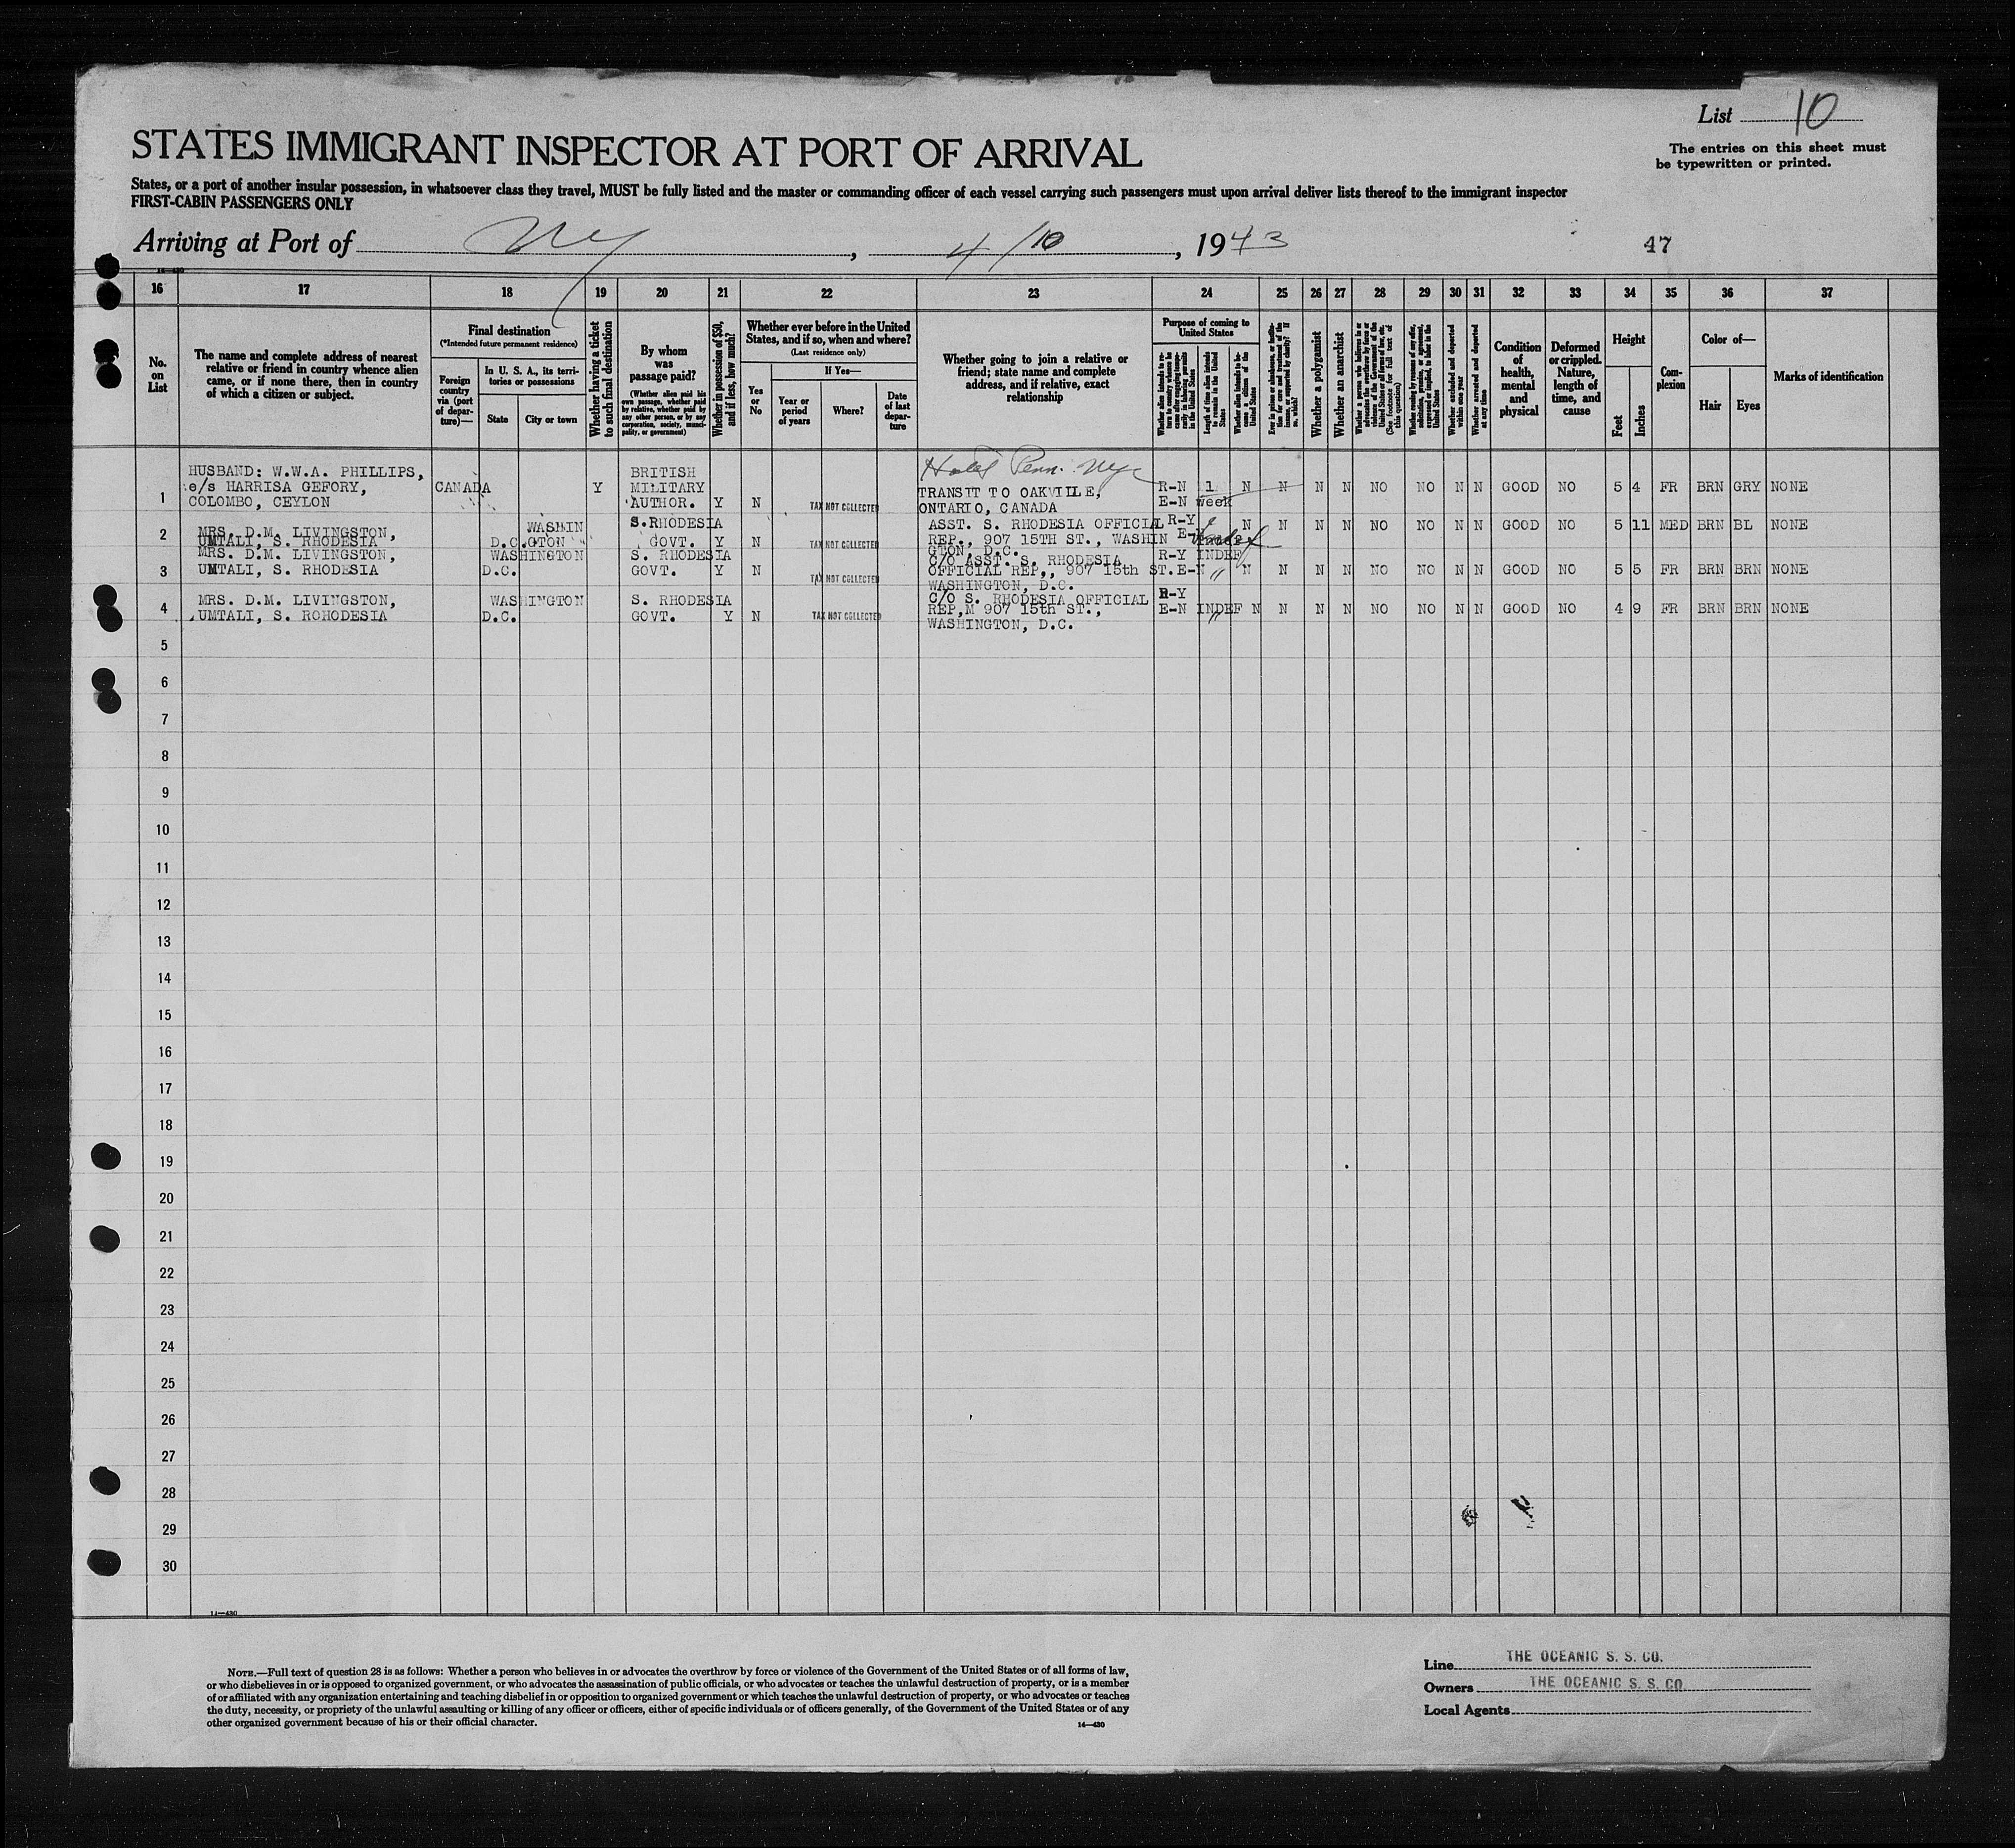 List 10
STATES IMMIGRANT INSPECTOR AT PORT OF ARRIVAL
The entries on this sheet must
be typewritten or printed.
States, or a port of another insular possession, in whatsoever class they travel, MUST be fully listed and the master or commanding officer of each vessel carrying such passengers must upon arrival deliver lists thereof to the immigrant inspector
FIRST-CABIN PASSENGERS ONLY
Arriving at Port of NY, 4/10, 1943
47
14—430
16 17 18 19 20 21 22 23 24 25 26 27 28 29 30 31 32 33 34 35 36 37
No.
on
List
The name and complete address of nearest
relative or friend in country whence alien
came, or if none there, then in country
of which a citizen or subject.
Final destination
(*Intended future permanent residence)
Foreign
country
via (port
of depar-
ture)—
In U. S. A., its terri-
tories or possessions
State
City or town
Whether having a ticket
to such final destination
By whom
was
passage paid?
(Whether alien paid his
own passage, whether paid
by relative, whether paid by
any other person, or by any
corporation, society, munici-
pality, or government)
Whether in possession of $50,
and if less, how much?
Whether ever before in the United
States, and if so, when and where?
(Last residence only)
Yes
or
No
If Yes—
Year or
period
of years
Where?
Date
of last
depar-
ture
Whether going to join a relative or
friend; state name and complete
address, and if relative, exact
relationship
Purpose of coming to
United States
Whether alien intends to re-
turn to country whence he
came after engaging tempo-
rarily in laboring pursuits
in the United States
Length of time alien intends
to remain in the United
States
Whether alien intends to be-
come a citizen of the
United States
Ever in prison or almshouse, or institu-
tion for care and treatment of the
insane, or supported by charity? If
so, which?
Whether a polygamist
Whether an anarchist
Whether a person who believes in or
advocates the overthrow by force or
violence of the Government of the
United States or all forms of law, etc.
(See footnote for full text of
this question)
Whether coming by reason of any offer,
solicitation, promise, or agreement,
expressed or implied, to labor in the
United States
Whether excluded and deported
within one year
Whether arrested and deported
at any time
Condition
of
health,
mental
and
physical
Deformed
or crippled.
Nature,
length of
time, and
cause
Height
Feet
Inches
Com-
plexion
Color of—
Hair
Eyes
Marks of identification
Hotel Penn. Nyc
HUSBAND: W.W.A. PHILLIPS, BRITISH
c/s HARRISA GEFORY, CANADA Y MILITARY TRANSIT TO OAKVILLE, R-N 1 N N N N NO NO N N GOOD NO 5 4 FR BRN GRY NONE
1 COLOMBO, CEYLON AUTHOR. Y N TAX NOT COLLECTED ONTARIO, CANADA E-N week
MRS. D.M. LIVINGSTON, WASHIN S.RHODESIA ASST. S. RHODESIA OFFICIAL R-Y N N N N NO NO N N GOOD NO 5 11 MED BRN BL NONE
2 UMTALI, S. RHODESIA D.C.GTON GOVT. Y N TAX NOT COLLECTED REP., 907 15TH ST., WASHIN E-N
GTON, D.C.
MRS. D.M. LIVINGSTON, WASHINGTON S. RHODESIA C/O ASST. S. RHODESIA R-Y INDEF
3 UMTALI, S. RHODESIA D.C. GOVT. Y N TAX NOT COLLECTED OFFICIAL REP,, 907 15th ST. E-N " N N N N NO NO N N GOOD NO 5 5 FR BRN BRN NONE
WASHINGTON, D.C.
MRS. D.M. LIVINGSTON, WASHINGTON S. RHODESIA C/O S. RHODESIA OFFICIAL R-Y
4 UMTALI, S. ROHODESIA D.C. GOVT. Y N TAX NOT COLLECTED REP,M 907 15th ST., E-N INDEF N N N N NO NO N N GOOD NO 4 9 FR BRN BRN NONE
WASHINGTON, D.C. "
5
6
7
8
9
10
11
12
13
14
15
16
17
18
19
20
21
22
23
24
25
26
27
28
29
30
14—430
NOTE.—Full text of question 28 is as follows: Whether a person who believes in or advocates the overthrow by force or violence of the Government of the United States or of all forms of law,
or who disbelieves in or is opposed to organized government, or who advocates the assassination of public officials, or who advocates or teaches the unlawful destruction of property, or is a member
of or affiliated with any organization entertaining and teaching disbelief in or opposition to organized government or which teaches the unlawful destruction of property, or who advocates or teaches
the duty, necessity, or propriety of the unlawful assaulting or killing of any officer or officers, either of specific individuals or of officers generally, of the Government of the United States or of any
other organized government because of his or their official character.
14—430
Line THE OCEANIC S. S. CO.
Owners THE OCEANIC S. S. CO
Local Agents